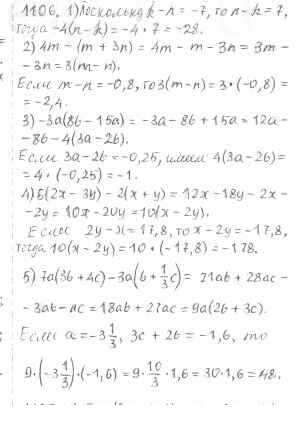 1106. 1) Поскольку k - n = -7, то n - k = 7,
тогда -4(n - k) = -4 · 7 = -28.
2) 4m - (m + 3n) = 4m - m - 3n = 3m -
- 3n = 3(m - n).
Если m - n = -0,8, то 3(m - n) = 3 · (-0,8) =
= -2,4.
3) -3a(8b - 15a) = -3a - 8b + 15a = 12a -
- 8b - 4(3a - 2b).
Если 3a - 2b = -0,25, имеем 4(3a - 2b) =
= 4 · (-0,25) = -1.
4) 6(2x - 3y) - 2(x + y) = 12x - 18y - 2x -
- 2y = 10x - 20y = 10(x - 2y).
Если 2y - x = 17,8, то x - 2y = -17,8,
тогда 10(x - 2y) = 10 · (-17,8) = -178.
5) 7a(3b + 4c) - 3a(b + 1/3 c) = 21ab + 28ac -
- 3ab - ac = 18ab + 27ac = 9a(2b + 3c).
Если a = -3 1/3, 3c + 2b = -1,6, то
9 · (-3 1/3) · (-1,6) = 9 · 10/3 · 1,6 = 30 · 1,6 = 48.